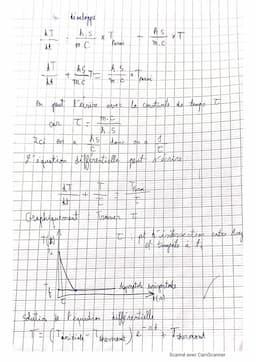 développe
dT/dt = h.S/m.C × Therm - h.S/m.c × T
dT/dt + h.S/m.c T = h.S/m.c × Therm
On peut l'écrire avec la constante de temps τ
car τ = m.c/h.S
Ici on a h.S donc on a 1/τ
L'équation différentielle peut s'écrire
dT/dt + T/τ = Ther/τ
Graphiquement Trouver τ
T(k)
τ : pt d'intersection entre
et tangente à
Asymptote horizontale
Tf
τ
t(s)
Solution de l'équation différentielle
T = (Tinitiale - Tthermost) e^-at + Tthermost
Scanné avec CamScanner